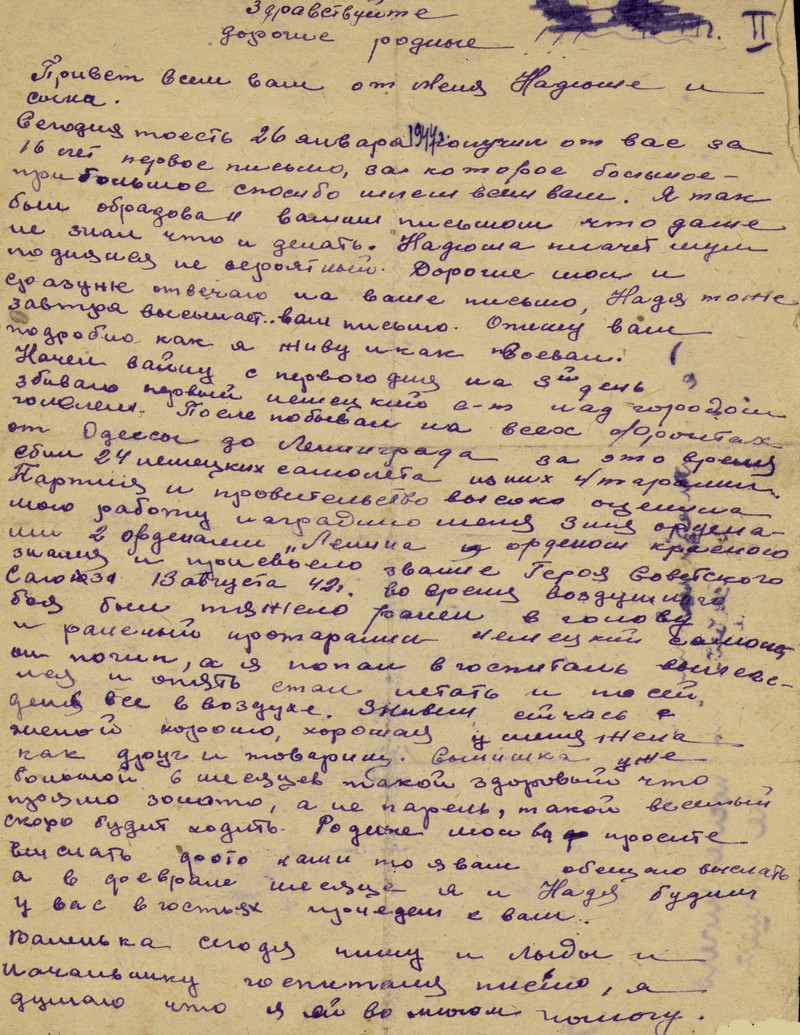 Здравствуйте
дорогие родные !!! г. II
Привет всем вам от меня Надюше и
сына.
Сегодня тоесть 26 января 1944г. получил от вас за
16 лет первое письмо, за которое большое-
прибольшое спосибо шлем всем вам. Я так
был обрадован вашим письмом что даже
не знал что и делать. Надюша плачет шум
поднялся не вероятный. Дорогие мои и
сразуже отвечаю на ваше письмо, Надя тоже
завтра высылает вам письмо. Опишу вам
подробно как я живу и как воевал.
Начел вайну с первого дня на 3й день
збиваю первый немецкий с-т над городом
После побывал на всех фронтах
от Одессы до Ленинграда за это время
сбил 24 немецких самолета из них 4 тараним.
Партия и провительство высоко оценила
мою работу наградило меня 3 мя ордена-
ми 2 орденами "Ленина и орденом красного
знамя и присвоело звание Героя Советского
Саюза 13 августа 42г. во время воздушного
боя был тяжело ранен в голову
и раненый протаранил немецкий самолет
он погиб, а я попал в госпиталь вылечи-
лся и опять стал летать и по сей
день все в воздухе. Живем сичас с
женой хорошо, хорошая у меня жена
как друг и товарищ. Сынишка уже
большой 6 месяцев такой здоровый что
прямо золото, а не парень, такой веселый
скоро будит ходить. Родные мои вы просите
выслать фото наши то я вам обещаю выслать
а в феврале месяце я и Надя будим
у вас в гостьях приедем к вам.
Валинька сегодя пишу и Лыды и
Начальнику госпиталя письмо, я
думаю что я ей во многом помогу.